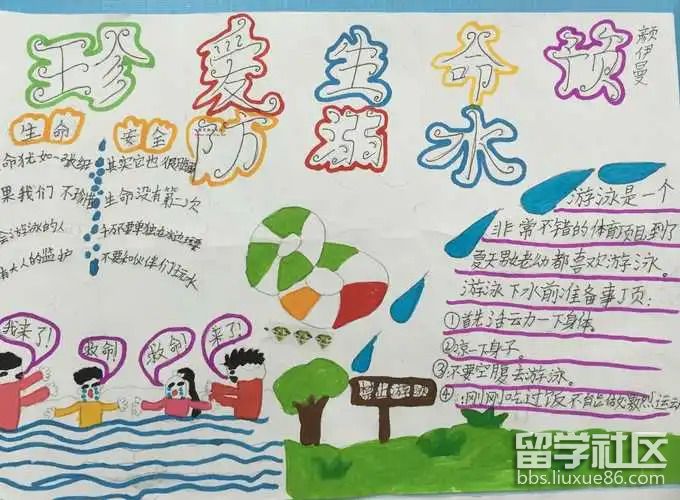 珍爱生命预
防溺水
颜伊曼
生命
命犹如一张纸
果我们不珍惜
会游泳的人
有大人的监护
安全
其实它也很脆弱
生命没有第二次
千万不要单独在水边玩耍
不要和伙伴们玩水
游泳是一个
非常不错的体育项目到了
夏天男老幼都喜欢游泳。
游泳下水前准备事项:
①首先活动一下身体
②凉一下身子。
③不要空腹去游泳。
④刚刚吃过饭不能做激烈运动
我来了!
救命!
救命!
来了!
禁止游泳
留学社区
bbs.liuxue86.com